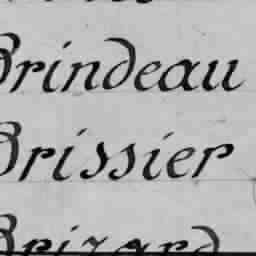 Brindeau
Brissier
Brizard